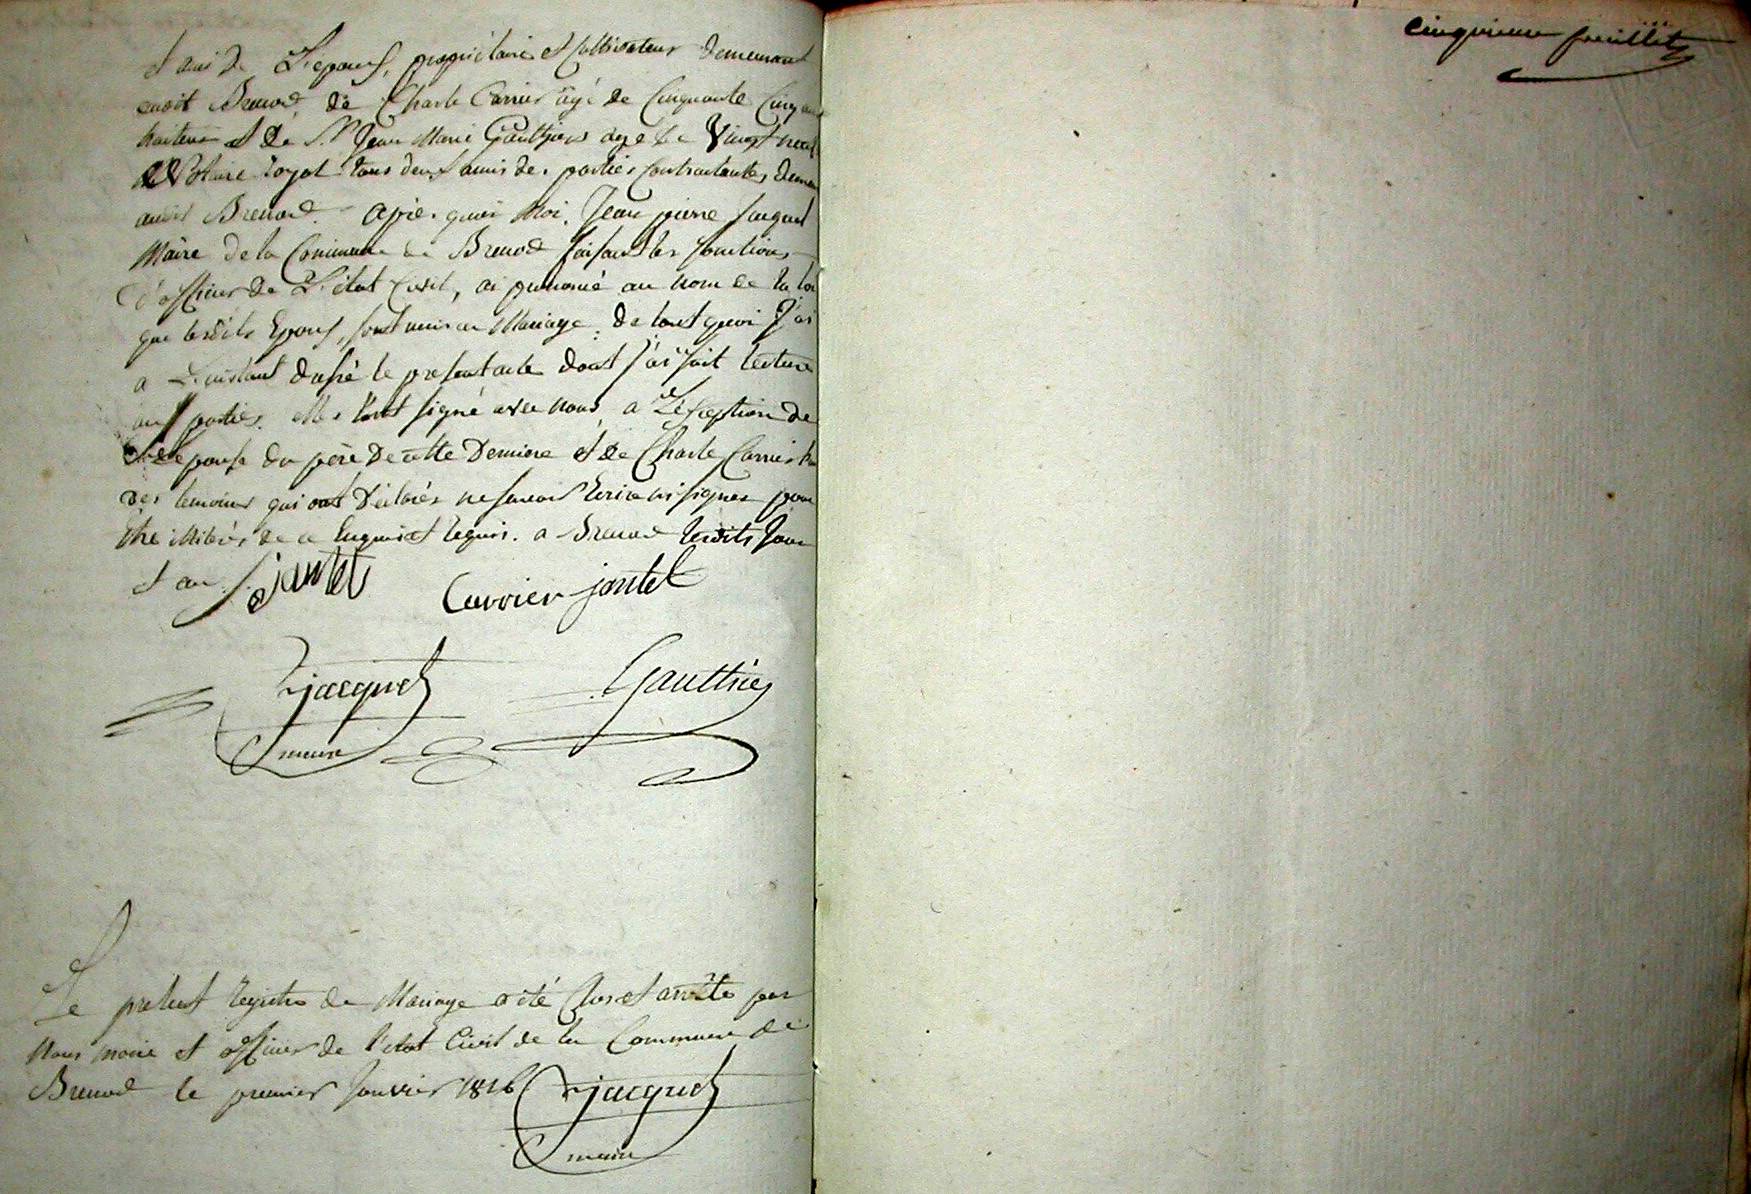 et ami de L'epoux, propriétaire et Cultivateur demeurant
audit Brenod, de Charle Carrier âgé de Cinquante Cinq ans
et de Sr Jean Marie Gauthier age de Vingt neuf
Notaire Royal tous deux amis des parties Contractantes demeu
audit Brenod. après quoi Moi, Jean pierre Jacquet
Maire de la Commune de Brenod faisant les fonctions
d'officier de L'état Civil, ai prononcé au nom de la loi
que lesdits Epoux, sont unis en Mariage. de tout quoi J'ai
a L'instant dressé le present acte dont j'ai fait lecture
aux parties. elles l'ont signé avec nous a L'exception de
L'epouse du père de cette Derniere et de Charle Carrier l'un
des temoins qui ont déclarés ne savoir Ecrire ni signer pour
être illitérés de ce Enquis et Requis. a Brenod lesdits Jour
et an.
Jantet Carrier jantet
Jacquet Gauthier
maire
Le present registre de Mariage a été Clos et arrêté par
Nous maire et officier de l'etat Civil de la Commune de
Brenod le premier Janvier 1816 Jacquet
maire
cinquieme feuillet